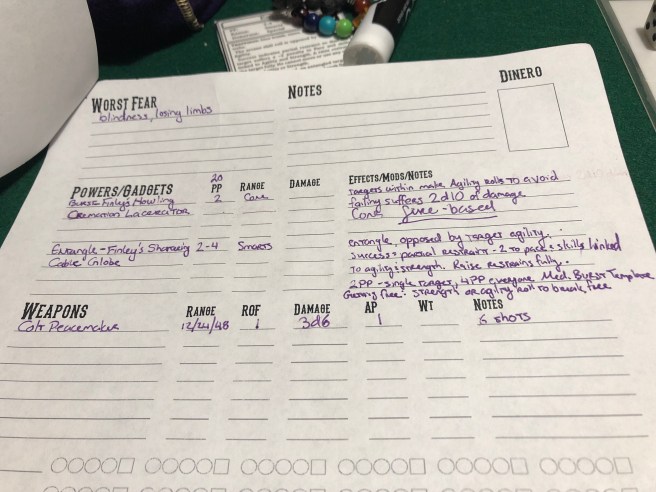 WORST FEAR
blindness, losing limbs
NOTES
DINERO
POWERS/GADGETS
20
PP
RANGE
DAMAGE
EFFECTS/MODS/NOTES
Burst-Finley's Howling 2 Cone
Cremation Lacerator
Targets within make Agility rolls to avoid
failing suffers 2d10 of damage
Cone fire-based
Entangle-Finley's Shocking 2-4 Smarts
Cable Globe
entangle, opposed by target agility.
success = partial restraint -2 to pace & skills linked
to agility & strength. Raise restrains fully.
2PP - single target, 4PP everyone Med. Burst Template
Getting free: strength or agility roll to break free
WEAPONS
RANGE
ROF
DAMAGE
AP
WT
NOTES
Colt Peacemaker 12/24/48 1 3d6 1 6 shots